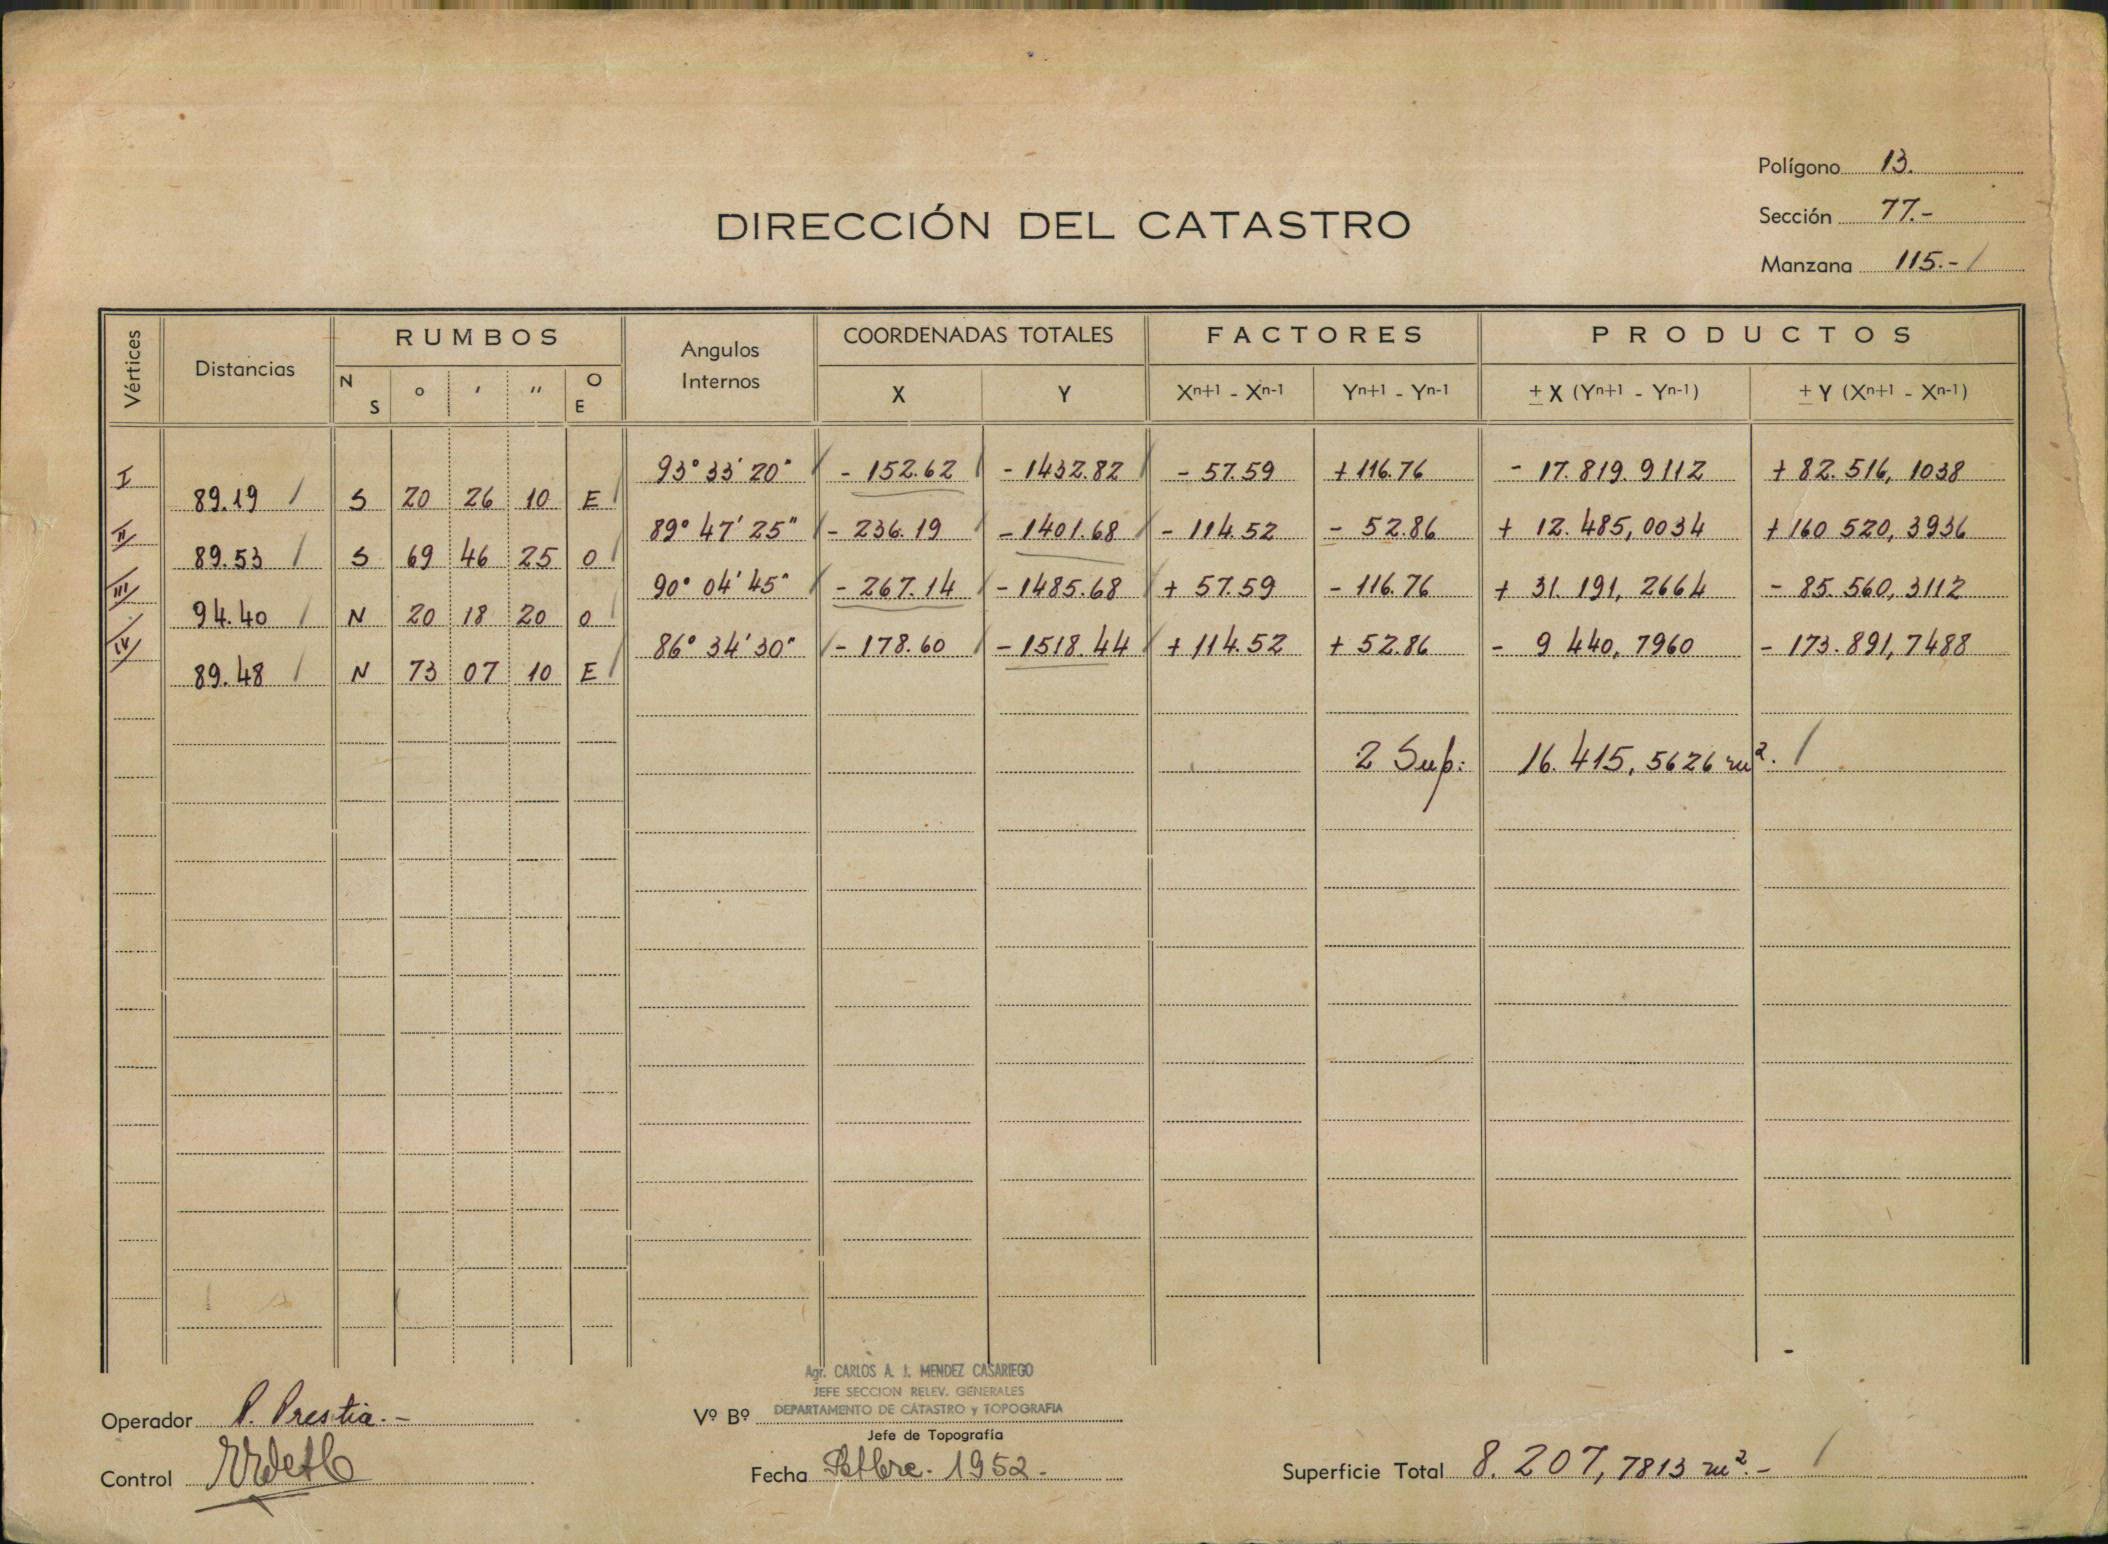 Polígono 13.
Sección 77.-
Manzana 115.-
DIRECCIÓN DEL CATASTRO
Vértices Distancias RUMBOS Angulos Internos COORDENADAS TOTALES FACTORES PRODUCTOS
N S ° ' " O E X Y Xn+1 - Xn-1 Yn+1 - Yn-1 ± X (Yn+1 - Yn-1) ± Y (Xn+1 - Xn-1)
I 93° 33' 20" - 152.62 - 1432.82 - 57.59 + 116.76 - 17.819.9112 + 82.516,1038
89.19 S 20 26 10 E
II 89° 47' 25" - 236.19 - 1401.68 - 114.52 - 52.86 + 12.485,0034 + 160 520,3936
89.53 S 69 46 25 O
III 90° 04' 45" - 267.14 - 1485.68 + 57.59 - 116.76 + 31.191,2664 - 85.560,3112
94.40 N 20 18 20 O
IV 86° 34' 30" - 178.60 - 1518.44 + 114.52 + 52.86 - 9 440,7960 - 173.891,7488
89.48 N 73 07 10 E
2 Sup: 16.415,5626 m².
Agr. CARLOS A. J. MENDEZ CASARIEGO
JEFE SECCION RELEV. GENERALES
DEPARTAMENTO DE CATASTRO y TOPOGRAFIA
Operador P. Prestia.-
Vº Bº
Jefe de Topografía
Control
Fecha Setbre. 1952.
Superficie Total 8.207,7813 m².-